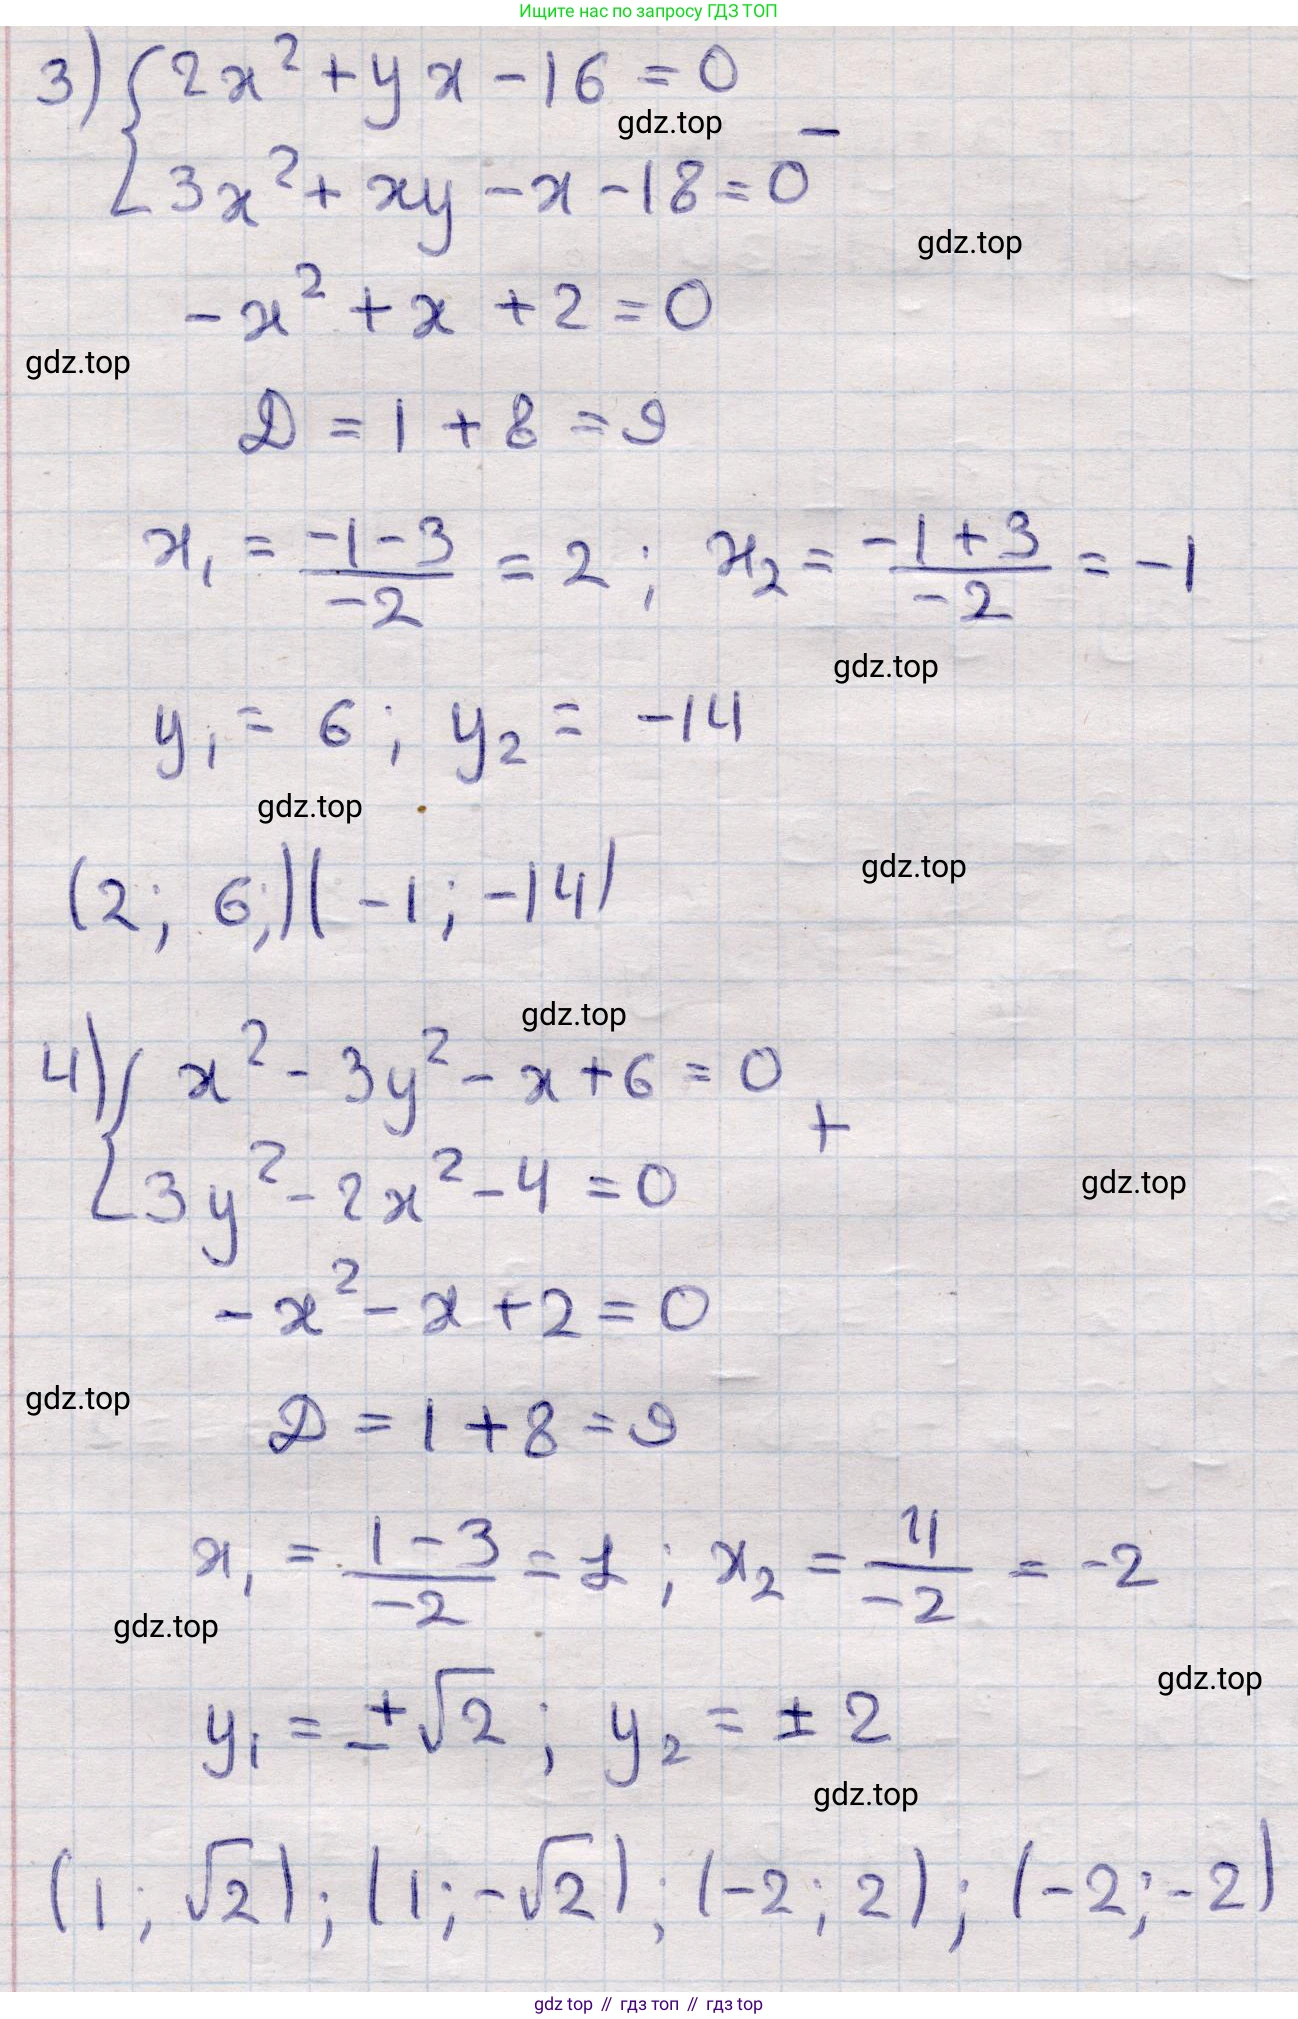 Ищите нас по запросу ГДЗ ТОП
3) { 2x² + yx - 16 = 0
gdz.top
-
3x² + xy - x - 18 = 0
gdz.top
-x² + x + 2 = 0
gdz.top
D = 1 + 8 = 9
x₁ = (-1-3)/(-2) = 2 ; x₂ = (-1+3)/(-2) = -1
gdz.top
y₁ = 6 ; y₂ = -14
gdz.top
gdz.top
(2; 6;)(-1; -14)
gdz.top
4) { x² - 3y² - x + 6 = 0
+
3y² - 2x² - 4 = 0
gdz.top
-x² - x + 2 = 0
gdz.top
D = 1 + 8 = 9
x₁ = (1-3)/(-2) = 1 ; x₂ = 4/(-2) = -2
gdz.top
gdz.top
y₁ = ±√2 ; y₂ = ± 2
gdz.top
(1; √2); (1; -√2); (-2; 2); (-2; -2)
gdz top // гдз топ // гдз top